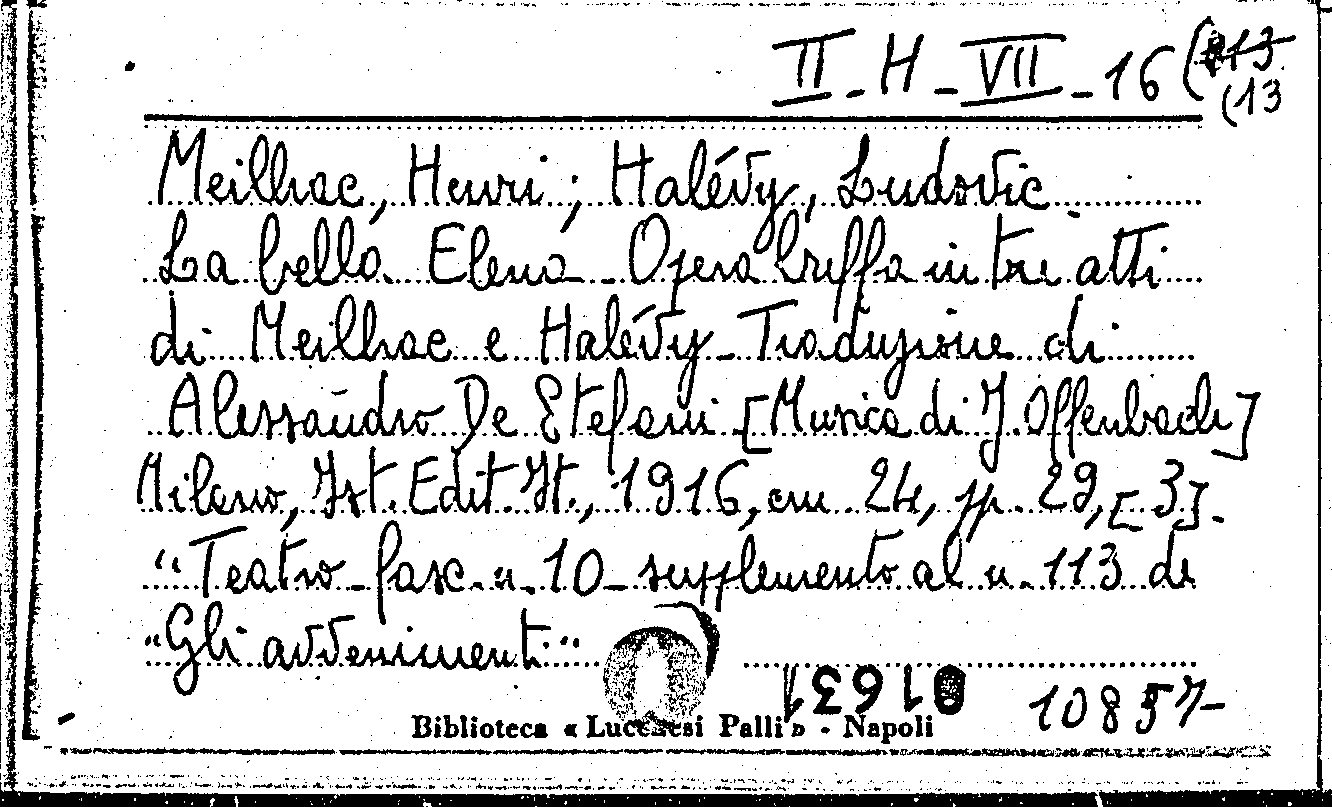 II - H - VII - 16 (13
(13
Meilhac, Henri; Halévy, Ludovic.
La bella Elena - Opera buffa in tre atti
di Meilhac e Halévy - Traduzione di
Alessandro De Stefani [Musica di J. Offenbach]
Milano, Ist. Edit. It., 1916, cm. 24, pp. 29, [3].
"Teatro - fasc. n. 10 - supplemento al n. 113 de
"Gli avvenimenti"
10857-
Biblioteca « Lucchesi Palli » - Napoli